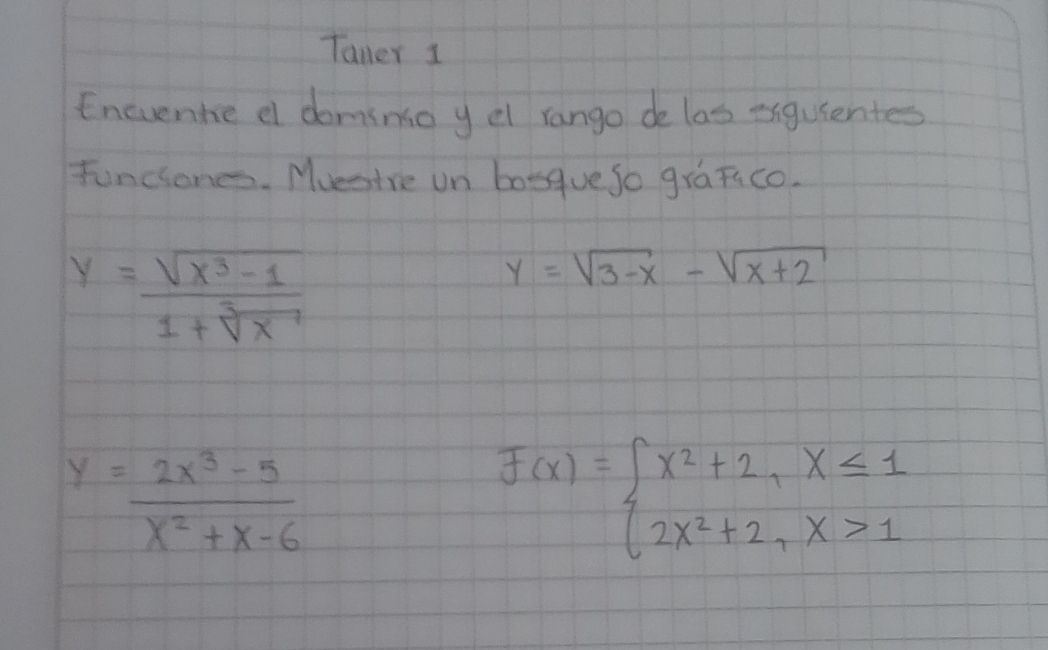 Taller 1
Encuentre el dominio y el rango de las siguientes
funciones. Muestre un bosquejo gráfico.
y = √(x³ - 1) / (1 + ∛x)    y = √(3-x) - √(x+2)
y = (2x³ - 5) / (x² + x - 6)    f(x) = { x² + 2, x ≤ 1
2x² + 2, x > 1